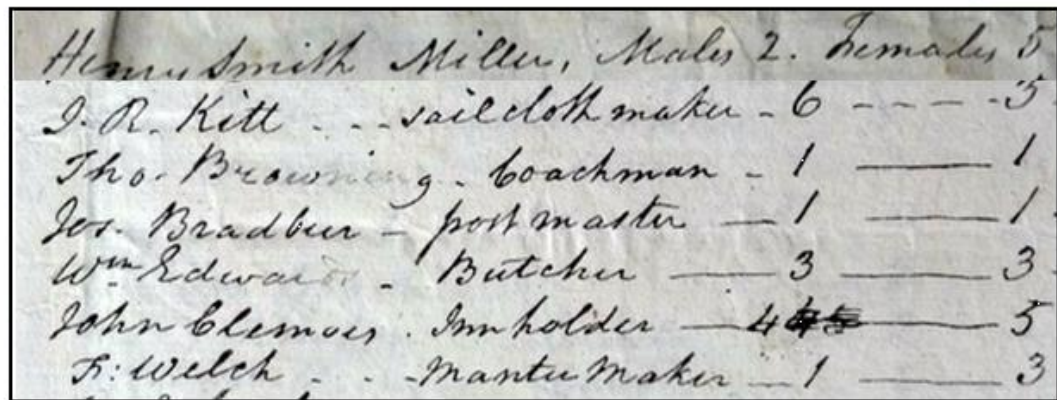 Henry Smith Miller, Males 2. Females 5
J. R. Kitt - - - sailcloth maker - 6 - - - - 5
Tho. Browning - Coachman - 1 — 1
Jos. Bradbeer - post master — 1 — 1
Wm Edwards - Butcher — 3 — 3
John Clemoes . Innholder — 4 — 5
F: Welch - - - Mantu Maker — 1 — 3